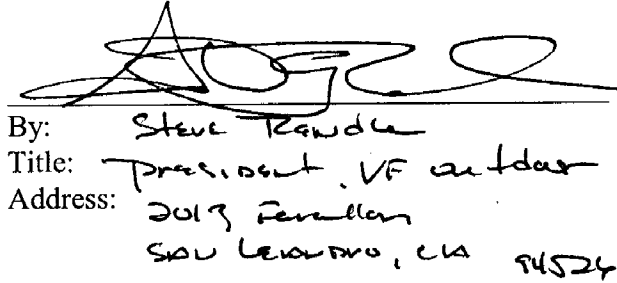 By: Steve Rendle
Title: President, VF outdoor
Address: 2013 Farallon
SAN LEANDRO, CA 94526